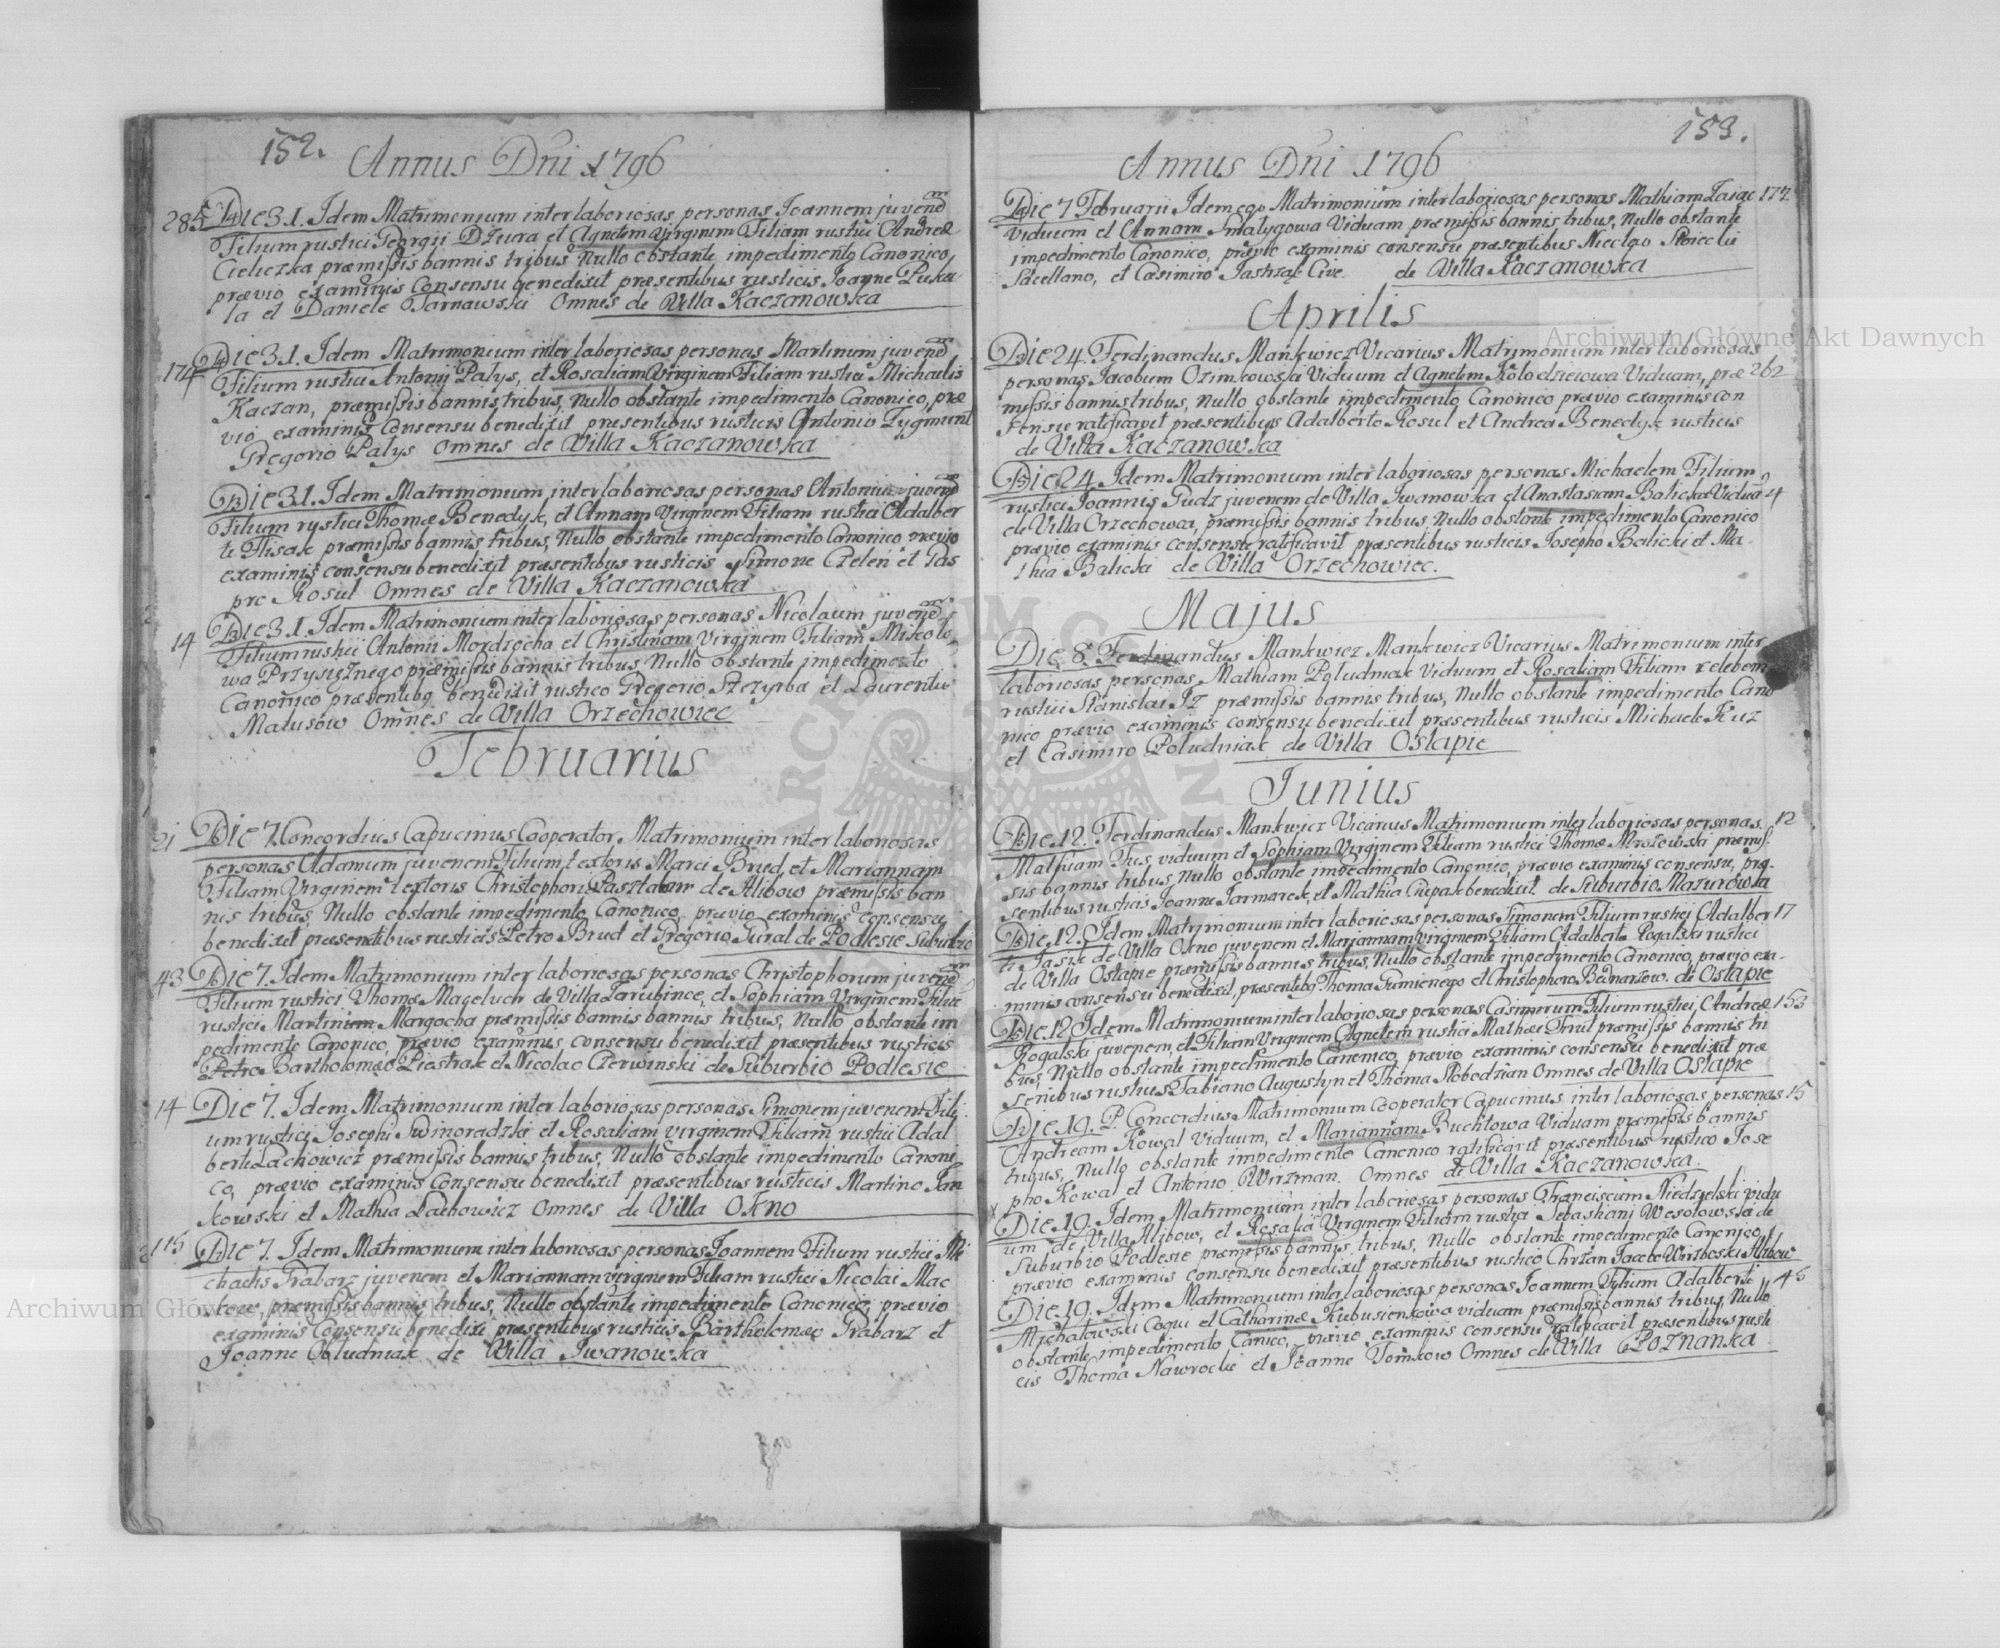 152.
Annus Dñi 1796
285 Die 31. Idem Matrimonium inter laboriosas personas Joannem juvenē
Filium rustici Georgii Dziura et Agnetem Virginem Filiam rustici Andreæ
Cieliczka præmissis bannis tribus Nullo obstante impedimento Canonico,
prævio examinis Consensu benedixit præsentibus rusticis Joanne Puka-
la et Daniele Tarnawski Omnes de Villa Kaczanowka
174 Die 31. Idem Matrimonium inter laboriosas personas Martinum juvenē
Filium rustici Antonii Palys, et Rosaliam Virginem Filiam rustici Michaelis
Kaczan, præmissis bannis tribus, Nullo obstante impedimento Canonico, præ
vio examinis Consensu benedixit presentibus rusticis Antonio Zygmunt
Gregorio Palys Omnes de Villa Kaczanowka
Die 31. Idem Matrimonium, inter laboriosas personas Antonium juvenē
Filium rustici Thomæ Benedyk, et Annam Virginem Filiam rustici Adalber
ti Flisak præmissis bannis tribus, Nullo obstante impedimento Canonico, prævio
examinis consensu benedixit præsentibus rusticis Simone Czelen et Gas
pre Kosul Omnes de Villa Kaczanowka
14 Die 31. Idem Matrimonium inter laboriosas personas Nicolaum juvenē
Filium rustici Antonii Mordzocha et Christinam Virginem Filiam Mikolo
wa Przysięznego præmissis bannis tribus Nullo obstante impedimento
Canonico præsentibq benedixit rustico Gregorio Szczyrba et Laurentio
Matusow Omnes de Villa Orzechowiec
Februarius
21 Die 7. Concordius Capucinus Cooperator. Matrimonium inter laboriosas
personas Adamum juvenem Filium textoris Marci Brud, et Mariannam
Filiam Virginem textoris Christophori de Alibow præmissis ban
nis tribus Nullo obstante impedimento Canonico, prævio examinis consensu
benedixit præsentibus rusticis Petro Brud et Gregorio Gural de Podlesie Suburbio
43 Die 7. Idem Matrimonium inter laboriosas personas Christophorum juvenē
Filium rustici Thomæ Mageluch de Villa Tarubince, et Sophiam Virginem Filiā
rustici Martinum Margocha præmissis bannis bannis tribus, Nullo obstante im
pedimento Canonico, prævio examinis consensu benedixit præsentibus rusticis
Petro Bartholomæo Piestrak et Nicolao Czerwinski de Suburbio Podlesie
14 Die 7. Idem Matrimonium inter laboriosas personas Simonem juvenem Fili-
um rustici Josephi Swinoradzki et Rosaliam virginem Filiam rustici Adal
berti Lachowicz præmissis bannis tribus, Nullo obstante impedimento Canoni
co, prævio examinis Consensu benedixit præsentibus rusticis Martino Jan
kowski et Mathia Lachowicz Omnes de Villa Okno
115 Die 7. Idem Matrimonium inter laboriosas personas Joannem Filium rustici Mi
chaelis Grabarz juvenem et Mariannam virginem Filiam rustici Nicolai Mac
kow, præmissis bannis tribus, Nullo obstante impedimento Canonico, prævio
examinis Consensu benedixi præsentibus rusticis Bartholomæo Grabarz et
Joanne Obludniak de Villa Iwanowka
153.
Annus Dñi 1796
Die 7 Februarii Idem ego Matrimonium inter laboriosas personas Mathiam Zaiąc 177
viduum et Annam Smalygowa Viduam præmissis bannis tribus, Nullo obstante
impedimento Canonico, prævio examinis consensu præsentibus Nicolao
Sacellano, et Casimiro Jastrząb Cive de Villa Kaczanowka
Aprilis
Die 24. Ferdinandus Mankwicz Vicarius Matrimonium inter laboriosas
personas Jacobum Ozimkowski Viduum et Agnetem Kolodziejowa Viduam, præ 262
missis bannis tribus, Nullo obstante impedimento Canonico prævio examinis con
sensu ratificavit præsentibus Adalberto Kosul et Andrea Benedyk rusticis
de Villa Kaczanowka
Die 24. Idem Matrimonium inter laboriosas personas Michaelem Filium
rustici Joannis Gudz juvenem de Villa Iwanowka et Anastasiam Balicka Viduā
de Villa Orzechowca, præmissis bannis tribus, Nullo obstante impedimento Canonico
prævio examinis consensu ratificavit præsentibus rusticis Josepho Balicki et Ma-
thia Balicki de Villa Orzechowiec.
Majus
Die 8. Ferdinandus Mankwicz Mankwicz Vicarius Matrimonium inter
laboriosas personas Mathiam Poludniak viduum et Rosaliam Filiam celebem
rustici Stanislai præmissis bannis tribus, Nullo obstante impedimento Cano
nico prævio examinis consensu benedixit præsentibus rusticis Michaele Kuz
et Casimiro Poludniak de Villa Ostapie
Junius
Die 12. Ferdinandus Mankwicz Vicarius Matrimonium inter laboriosas personas 12
Mathiam Fus viduum et Sophiam Virginem Filiam rustici Thomæ Mrozowski præmis-
sis bannis tribus, Nullo obstante impedimento Canonico, prævio examinis consensu, præ
sentibus rusticis Joanne Jarmarek, et Mathia benedixit. de Suburbio Mazurowka
Die 12. Idem Matrimonium inter laboriosas personas Simonem Filium rustici Adalber 17
ti Jasik de Villa Okno juvenem et Mariannam virginem Filiam Adalberti Rogalski rustici
de Villa Ostapie præmissis bannis tribus, Nullo obstante impedimento Canonico, prævio exa-
minis consensu benedixit, præsentibq Thoma Gumienego et Christophoro Bednarzow. de Ostapie
Die 12 Idem Matrimonium inter laboriosas personas Casimirum Filium rustici, Andreæ 153
Rogalski juvenem, et Filiam Virginem Agnetem rustici Mathæi præmissis bannis tri
bus, Nullo obstante impedimento Canonico, prævio examinis consensu benedixit præ
sentibus rusticis Fabiano Augustyn et Thoma Slobodzian Omnes de Villa Ostapie
Die 19. P. Concordius Matrimonium Cooperator Capucinus inter laboriosas personas 15
Andream Kowal Viduum, et Mariannam Buchtowa Viduam præmissis bannis
tribus, Nullo obstante impedimento Canonico ratificavit præsentibus rustico Jose
pho Kowal et Antonio Wirzman. Omnes de Villa Kaczanowka.
x Die 19. Idem Matrimonium inter laboriosas personas Franciscum Niedzielski vidu
um de Villa Alibow, et Rosalia Virginem Filiam rustici Sebastiani Wesolowska de
Suburbio Podlesie præmissis bannis tribus, Nullo obstante impedimento Canonico,
prævio examinis consensu benedixit præsentibus rustico Chrzan Jacobo Wirzboski Alibow
Die 19. Idem Matrimonium inter laboriosas personas Joannem Filium Adalberti 45
Michalowski Coqui et Catharinæ Kubusienkowa viduam præmissis bannis tribus, Nullo
obstante impedimento Canico, prævio examinis consensu ratificavit præsentibus rusti
cis Thoma Nawrocki et Joanne Tomkow Omnes de Villa Poznanka
Archiwum Główne Akt Dawnych
Archiwum Główne Akt Dawnych